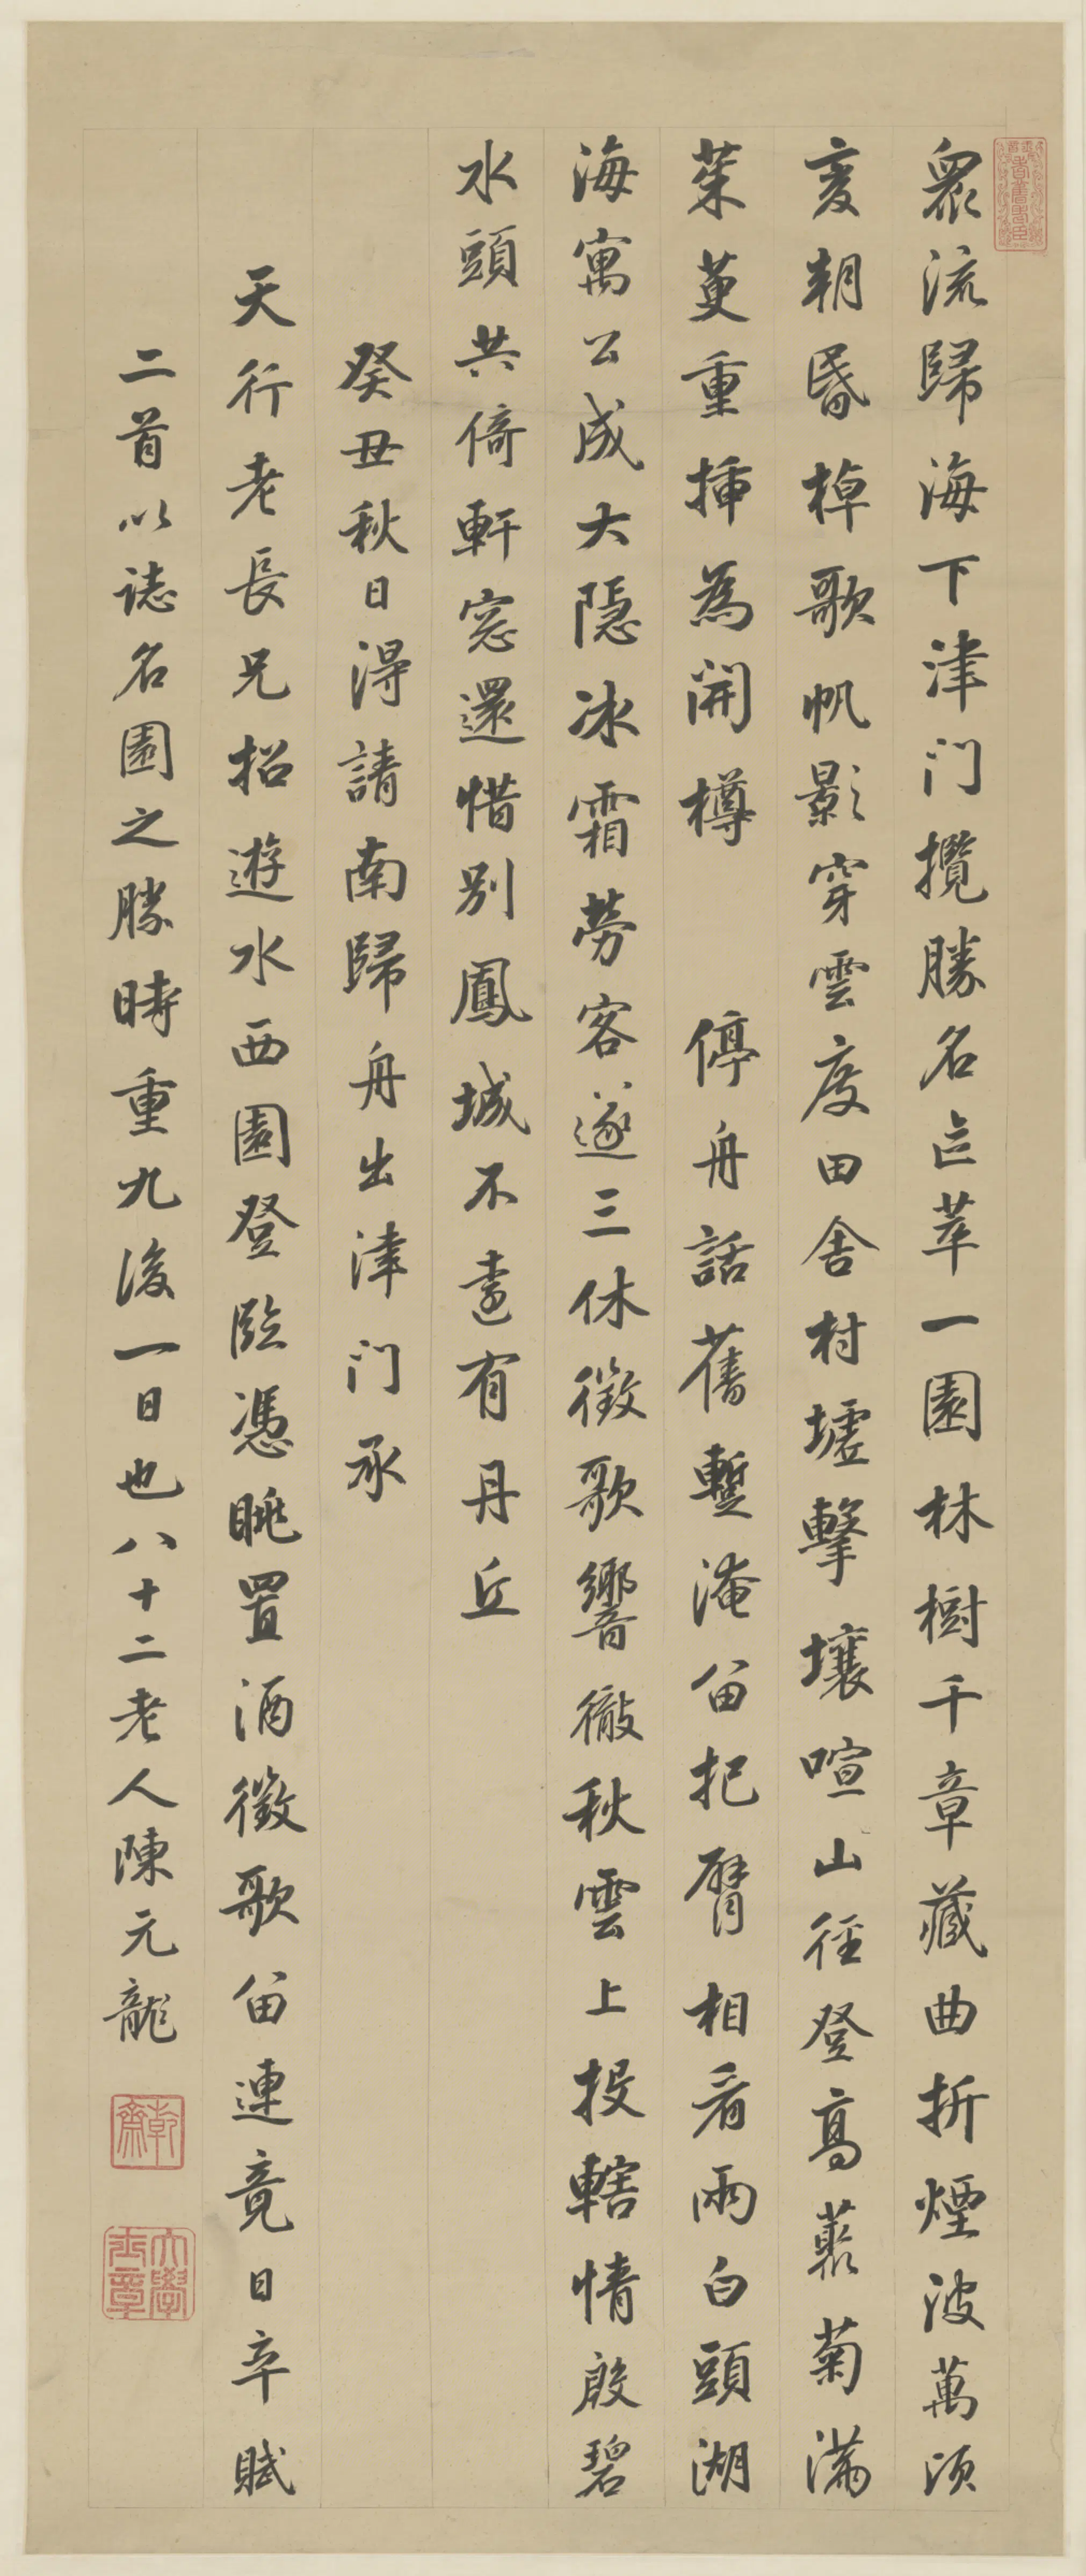 眾流歸海下津门攬勝名區萃一園林樹千章藏曲折煙波萬頃
変朝昏棹歌帆影穿雲度田舍村墟擊壤喧山徑登高叢菊滿
茱萸重插為開樽 停舟話舊暫淹留把臂相看兩白頭湖
海寓公成大隱冰霜勞客遂三休徵歌響徹秋雲上投轄情殷碧
水頭共倚軒窓還惜別鳳城不遠有丹丘
癸丑秋日得請南歸舟出津门承
天行老長兄招遊水西園登臨憑眺置酒徵歌留連竟日卒賦
二首以誌名園之勝時重九後一日也八十二老人陳元龍
乾齋
大學士章